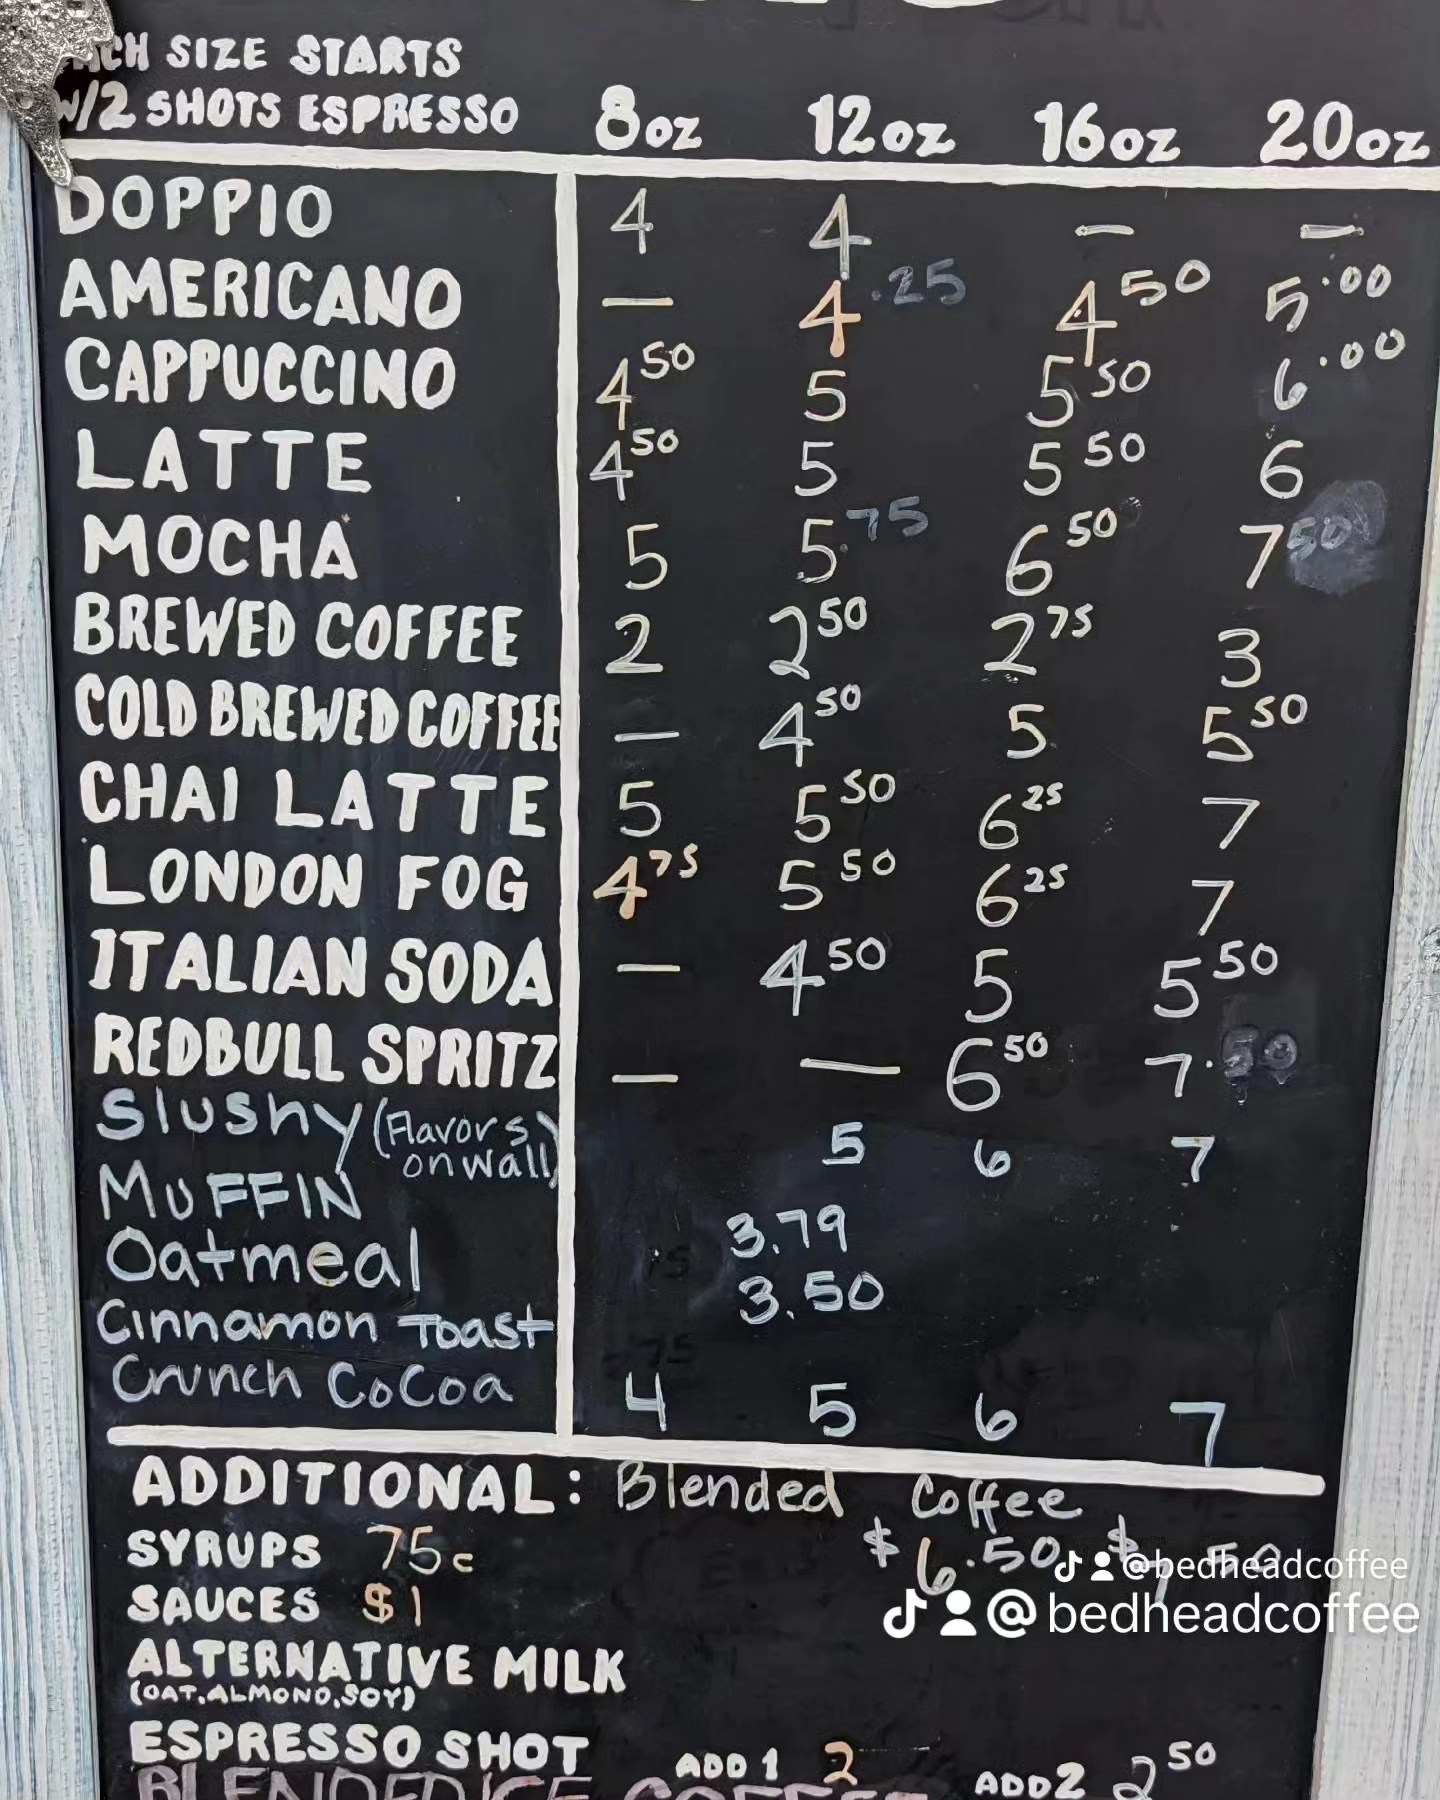 SIZE STARTS
W/2 SHOTS ESPRESSO 8oz 12oz 16oz 20oz
DOPPIO 4 4 — —
AMERICANO — 4.25 4 50 5.00
CAPPUCCINO 4 50 5 5 50 6.00
LATTE 4 50 5 5 50 6
MOCHA 5 5.75 6 50 7 50
BREWED COFFEE 2 2 50 2 75 3
COLD BREWED COFFEE — 4 50 5 5 50
CHAI LATTE 5 5 50 6 25 7
LONDON FOG 4 75 5 50 6 25 7
ITALIAN SODA — 4 50 5 5 50
REDBULL SPRITZ — — 6 50 7.50
Slushy (Flavors on wall) 5 6 7
MUFFIN 3.79
Oatmeal 3.50
Cinnamon Toast
Crunch CoCoa 4 5 6 7
ADDITIONAL: Blended Coffee
SYRUPS 75c $6.50 $ .50
SAUCES $1
@bedheadcoffee
@bedheadcoffee
ALTERNATIVE MILK
(OAT, ALMOND, SOY)
ESPRESSO SHOT ADD 1 2 ADD 2 2 50